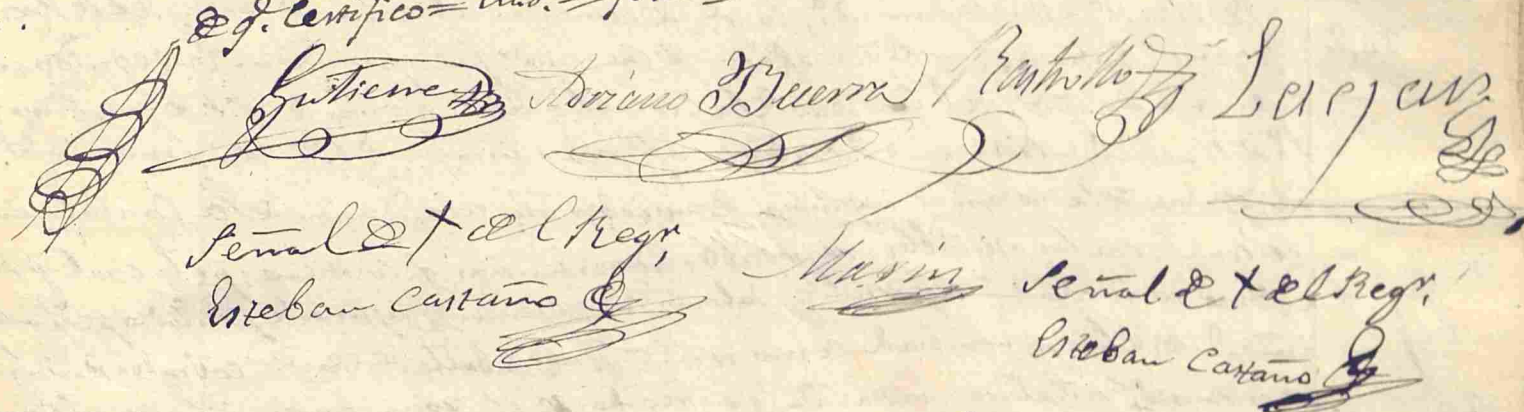 de q.e Certifico=
Gutierrez Adriano Becerra Rastrollo Laejas
Señal de + del Regr.
Esteban Castaño
Marin
Señal de + del Regr.
Esteban Castaño